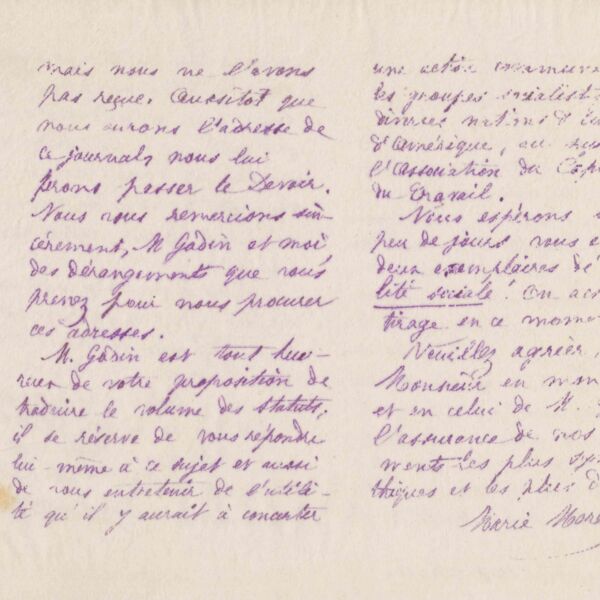 mais nous ne l'avons
pas reçue. Aussitôt que
nous aurons l'adresse de
ce journal, nous lui
ferons passer le Devoir.
Nous vous remercions sin-
cèrement, M. Godin et moi
des dérangements que vous
prenez pour nous procurer
ces adresses.
M. Godin est tout heu-
reux de votre proposition de
traduire le volume des statuts;
il se réserve de vous répondre
lui-même à ce sujet et aussi
de vous entretenir de l'utili-
té qu'il y aurait à concerter
une action commune
les groupes socialist
diverses nations d'Eu
d'Amérique, au su
l'association du Cap
du Travail.
Nous espérons
peu de jours vous e
deux exemplaires de
lité sociale! On ac
tirage en ce mome
Veuillez agréer,
Monsieur en mon
et en celui de M.
l'assurance de nos
ments les plus sy
thiques et les plus d
Marie More